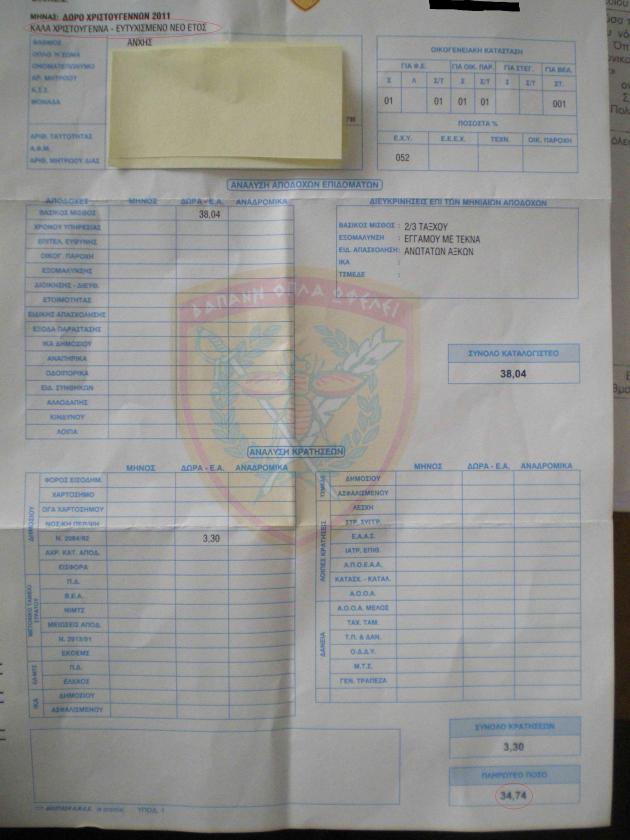 ΜΗΝΑΣ: ΔΩΡΟ ΧΡΙΣΤΟΥΓΕΝΝΩΝ 2011
ΚΑΛΑ ΧΡΙΣΤΟΥΓΕΝΝΑ - ΕΥΤΥΧΙΣΜΕΝΟ ΝΕΟ ΕΤΟΣ
ΒΑΘΜΟΣ ΑΝΧΗΣ
ΟΠΛΟ Ή ΣΩΜΑ
ΟΝΟΜΑΤΕΠΩΝΥΜΟ
ΑΡ. ΜΗΤΡΩΟΥ
ΜΟΝΑΔΑ
ΑΡΙΘ. ΤΑΥΤΟΤΗΤΑΣ
Α.Φ.Μ.
ΑΡΙΘ. ΜΗΤΡΩΟΥ ΔΙΑΣ
ΟΙΚΟΓΕΝΕΙΑΚΗ ΚΑΤΑΣΤΑΣΗ
ΓΙΑ Φ.Ε. ΓΙΑ ΟΙΚ. ΠΑΡ. ΓΙΑ ΣΤΕΓ. ΓΙΑ ΒΕΑ.
Σ Λ Σ/Τ Σ Σ/Τ Σ Σ/Τ ΣΤ.
01 01 01 01 001
ΠΟΣΟΣΤΑ %
Ε.Χ.Υ. Ε.Ε.Ε.Χ. ΤΕΧΝ. ΟΙΚ. ΠΑΡΟΧΗ
052
ΑΝΑΛΥΣΗ ΑΠΟΔΟΧΩΝ ΕΠΙΔΟΜΑΤΩΝ
ΑΠΟΔΟΧΕΣ ΜΗΝΟΣ ΔΩΡΑ - Ε.Α. ΑΝΑΔΡΟΜΙΚΑ
ΒΑΣΙΚΟΣ ΜΙΣΘΟΣ 38,04
ΧΡΟΝΟΥ ΥΠΗΡΕΣΙΑΣ
ΕΠΙΤΕΛ. ΕΥΘΥΝΗΣ
ΟΙΚΟΓ. ΠΑΡΟΧΗ
ΕΞΟΜΑΛΥΝΣΗΣ
ΔΙΟΙΚΗΣΗΣ - ΔΙΕΥΘ.
ΕΤΟΙΜΟΤΗΤΑΣ
ΕΙΔΙΚΗΣ ΑΠΑΣΧΟΛΗΣΗΣ
ΕΞΟΔΑ ΠΑΡΑΣΤΑΣΗΣ
ΙΚΑ ΔΗΜΟΣΙΟΥ
ΑΝΑΠΗΡΙΚΑ
ΟΔΟΙΠΟΡΙΚΑ
ΕΙΔ. ΣΥΝΘΗΚΩΝ
ΑΛΛΟΔΑΠΗΣ
ΚΙΝΔΥΝΟΥ
ΛΟΙΠΑ
ΔΙΕΥΚΡΙΝΗΣΕΙΣ ΕΠΙ ΤΩΝ ΜΗΝΙΑΙΩΝ ΑΠΟΔΟΧΩΝ
ΒΑΣΙΚΟΣ ΜΙΣΘΟΣ : 2/3 ΤΑΞΧΟΥ
ΕΞΟΜΑΛΥΝΣΗ : ΕΓΓΑΜΟΥ ΜΕ ΤΕΚΝΑ
ΕΙΔ. ΑΠΑΣΧΟΛΗΣΗ : ΑΝΩΤΑΤΩΝ ΑΞΚΩΝ
ΙΚΑ :
ΤΣΜΕΔΕ :
ΔΑΠΑΝΗ ΟΠΛΑ ΩΦΕΛΕΙ
ΣΥΝΟΛΟ ΚΑΤΑΛΟΓΙΣΤΕΟ
38,04
ΑΝΑΛΥΣΗ ΚΡΑΤΗΣΕΩΝ
ΜΗΝΟΣ ΔΩΡΑ - Ε.Α. ΑΝΑΔΡΟΜΙΚΑ
ΔΗΜΟΣΙΟΥ
ΦΟΡΟΣ ΕΙΣΟΔΗΜ.
ΧΑΡΤΟΣΗΜΟ
ΟΓΑ ΧΑΡΤΟΣΗΜΟΥ
Ν. 2084/92 3,30
ΑΧΡ. ΚΑΤ. ΑΠΟΔ.
ΜΕΤΟΧΙΚΟ ΤΑΜΕΙΟ ΣΤΡΑΤΟΥ
ΕΙΣΦΟΡΑ
Π.Δ.
Β.Ε.Α.
ΝΙΜΤΣ
ΜΕΙΩΣΕΙΣ ΑΠΟΔ.
Ν. 2913/01
ΕΚΟΕΜΣ
Π.Δ.
ΙΚΑ
ΔΗΜΟΣΙΟΥ
ΑΣΦΑΛΙΣΜΕΝΟΥ
ΜΗΝΟΣ ΔΩΡΑ - Ε.Α. ΑΝΑΔΡΟΜΙΚΑ
ΔΗΜΟΣΙΟΥ
ΑΣΦΑΛΙΣΜΕΝΟΥ
ΛΟΙΠΕΣ ΚΡΑΤΗΣΕΙΣ
ΛΕΣΧΗ
ΣΤΡ. ΣΥΓΓΡ.
Ε.Α.Α.Σ.
ΙΑΤΡ. ΕΠΙΘ.
Α.Π.Ο.Ε.Α.Α.
ΚΑΤΑΣΚ. - ΚΑΤΑΛ.
Α.Ο.Ο.Α.
ΔΑΝΕΙΑ
Α.Ο.Ο.Α. ΜΕΛΟΣ
ΤΑΧ. ΤΑΜ.
Τ.Π. & ΔΑΝ.
Ο.Δ.Δ.Υ.
Μ.Τ.Σ.
ΓΕΝ. ΤΡΑΠΕΖΑ
ΣΥΝΟΛΟ ΚΡΑΤΗΣΕΩΝ
3,30
ΠΛΗΡΩΤΕΟ ΠΟΣΟ
34,74